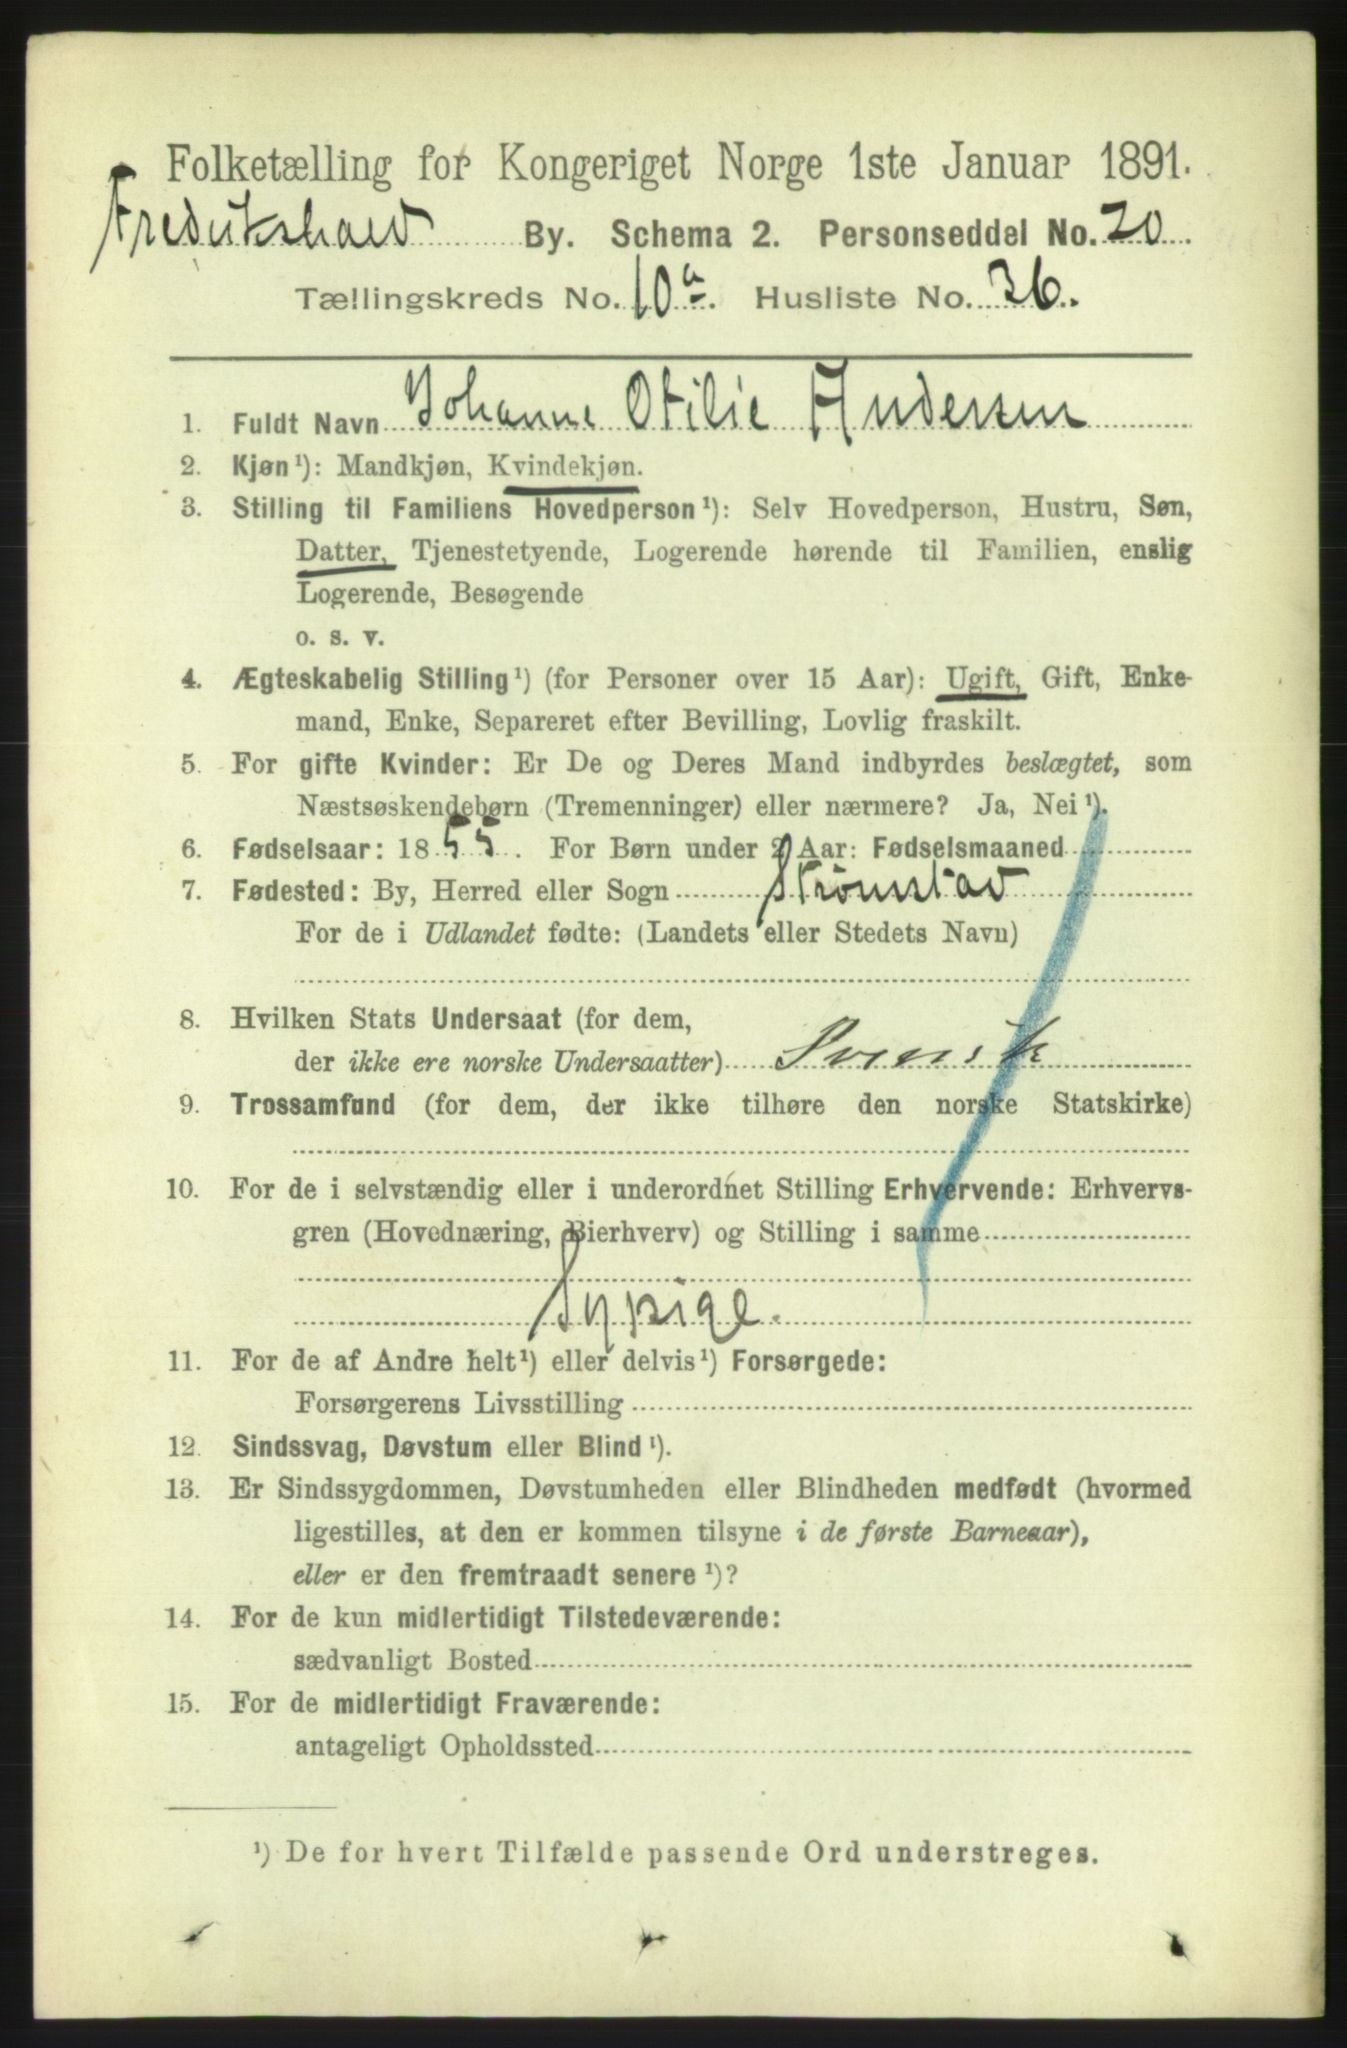 Folketælling for Kongeriget Norge 1ste Januar 1891.
Fredrikshald By. Schema 2. Personseddel No. 20.
Tællingskreds No. 10a. Husliste No. 36.
1. Fuldt Navn Johanne Otilie Andersen
2. Kjøn¹): Mandkjøn, Kvindekjøn.
3. Stilling til Familiens Hovedperson¹): Selv Hovedperson, Hustru, Søn,
Datter, Tjenestetyende, Logerende hørende til Familien, enslig
Logerende, Besøgende
o. s. v.
4. Ægteskabelig Stilling¹) (for Personer over 15 Aar): Ugift, Gift, Enke-
mand, Enke, Separeret efter Bevilling, Lovlig fraskilt.
5. For gifte Kvinder: Er De og Deres Mand indbyrdes beslægtet, som
Næstsøskendebørn (Tremenninger) eller nærmere? Ja, Nei¹).
6. Fødselsaar: 1855. For Børn under 2 Aar: Fødselsmaaned
7. Fødested: By, Herred eller Sogn Strømstad
For de i Udlandet fødte: (Landets eller Stedets Navn)
8. Hvilken Stats Undersaat (for dem,
der ikke ere norske Undersaatter) Svensk
9. Trossamfund (for dem, der ikke tilhøre den norske Statskirke)
10. For de i selvstændig eller i underordnet Stilling Erhvervende: Erhvervs-
gren (Hovednæring, Bierhverv) og Stilling i samme
Sypige.
11. For de af Andre helt¹) eller delvis¹) Forsørgede:
Forsørgerens Livsstilling
12. Sindssvag, Døvstum eller Blind¹).
13. Er Sindssygdommen, Døvstumheden eller Blindheden medfødt (hvormed
ligestilles, at den er kommen tilsyne i de første Barneaar),
eller er den fremtraadt senere¹)?
14. For de kun midlertidigt Tilstedeværende:
sædvanligt Bosted
15. For de midlertidigt Fraværende:
antageligt Opholdssted
¹) De for hvert Tilfælde passende Ord understreges.